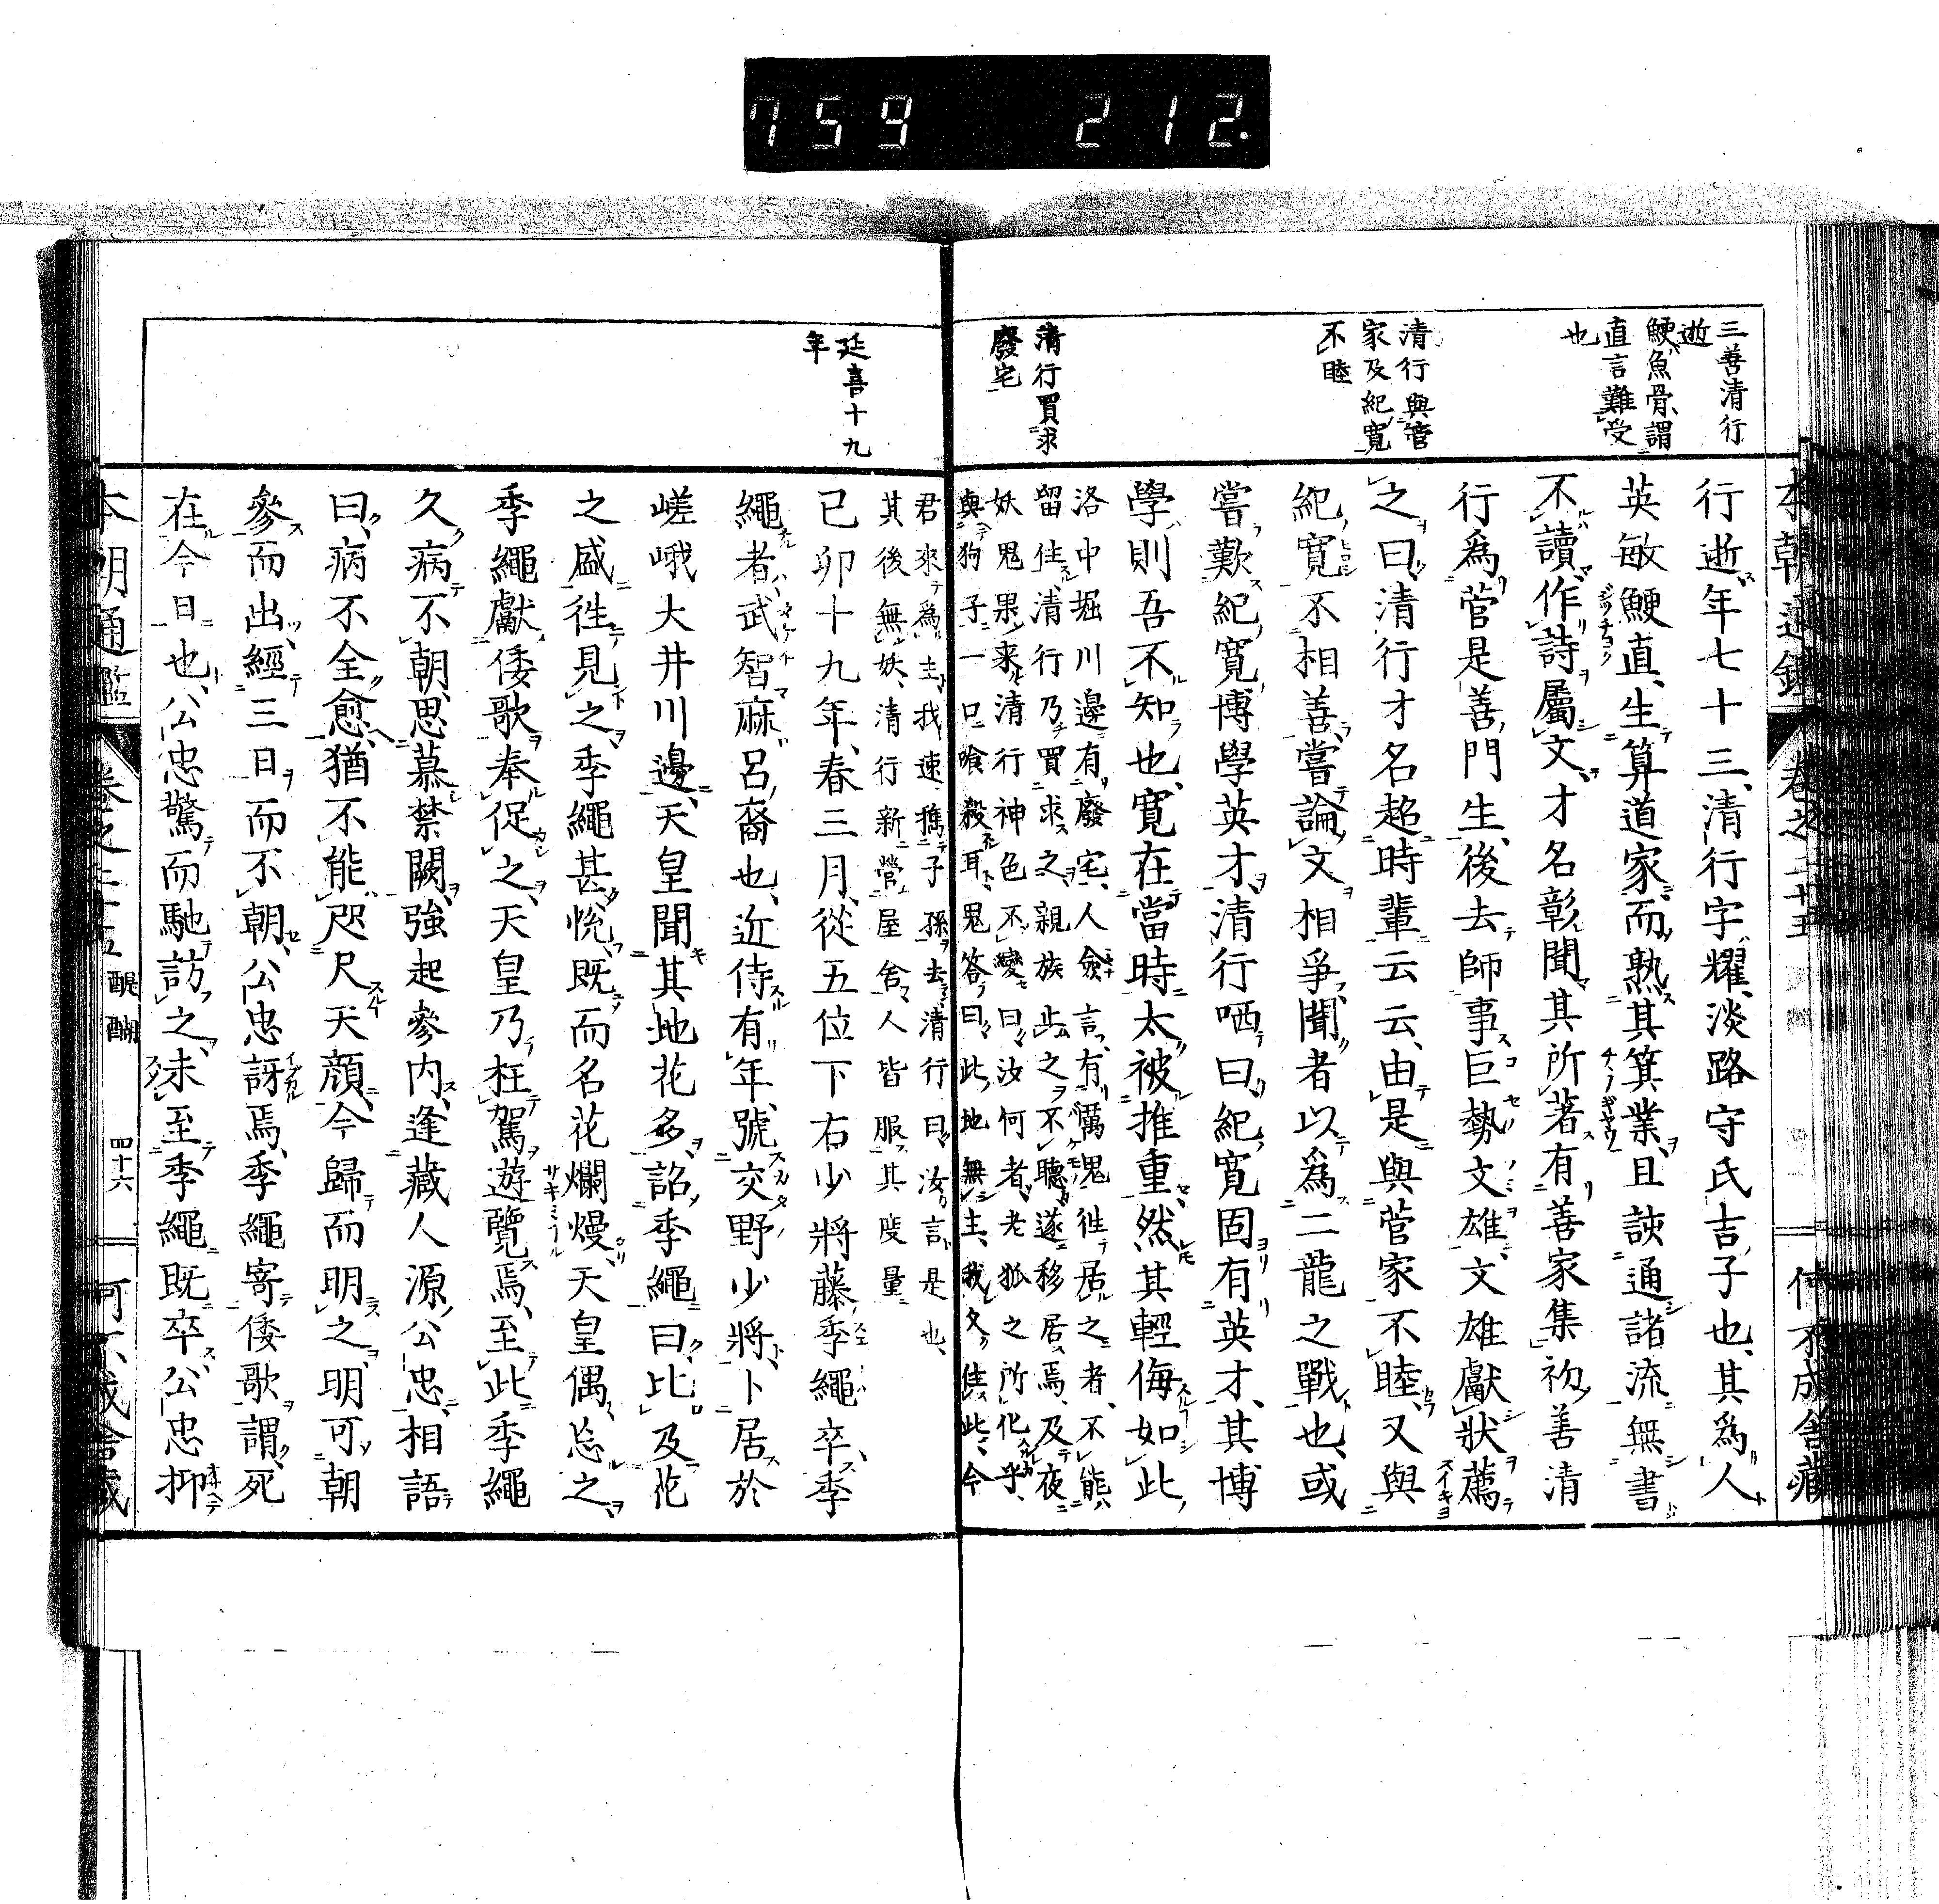 759 212.
三善清行
逝
鯁魚骨、謂
直言難受
也
清行與管
家及紀寬
不睦
清行買求
廢宅
行逝年七十三、清行字耀、淡路守氏吉子也、其爲人
英敏鯁直、生算道家、而熟其箕業、且該通諸流、無書
不讀、作詩屬文、才名彰聞、其所著有善家集、初善清
行爲菅是善門生、後去師事巨勢文雄、文雄獻狀薦
之曰、清行才名超時輩云云、由是與菅家不睦、又與
紀寬不相善、嘗論文相爭、聞者以爲二龍之戰也、或
嘗歎紀寬博學英才、清行哂曰、紀寬固有英才、其博
學則吾不知也、寬在當時太被推重、然其輕侮如此、
洛中堀川邊有廢宅、人僉言、有厲鬼、徃居之者、不能
留住、清行乃買求之、親族止之不聽、遂移居焉、及夜
妖鬼果來、清行神色不變曰、汝何者、老狐之所化乎、
與狗子一口喰殺耳、鬼答曰、此地無主、我久住此、今
延喜十九
年
君來爲主、我速携子孫去、清行曰、汝言是也、
其後無妖、清行新營屋舍、人皆服其度量
己卯十九年、春三月、從五位下右少將藤季繩卒、季
繩者武智麻呂裔也、近侍有年、號交野少將、卜居於
嵯峨大井川邊、天皇聞其地花多、詔季繩曰、比及花
之盛徃見之、季繩甚悅、既而名花爛熳、天皇偶忘之、
季繩獻倭歌奉促之、天皇乃枉駕遊覽焉、至此季繩
久病不朝、思慕禁闕、強起參内、逢藏人源公忠、相語
曰、病不全愈、猶不能咫尺天顏、今歸而明之明可朝
參而出、經三日而不朝、公忠訝焉、季繩寄倭歌謂、死
在今日也、公忠驚而馳訪之、未至季繩既卒、公忠抑
本朝通鑑
卷之二十五
醍醐
四十六
何不成舍藏